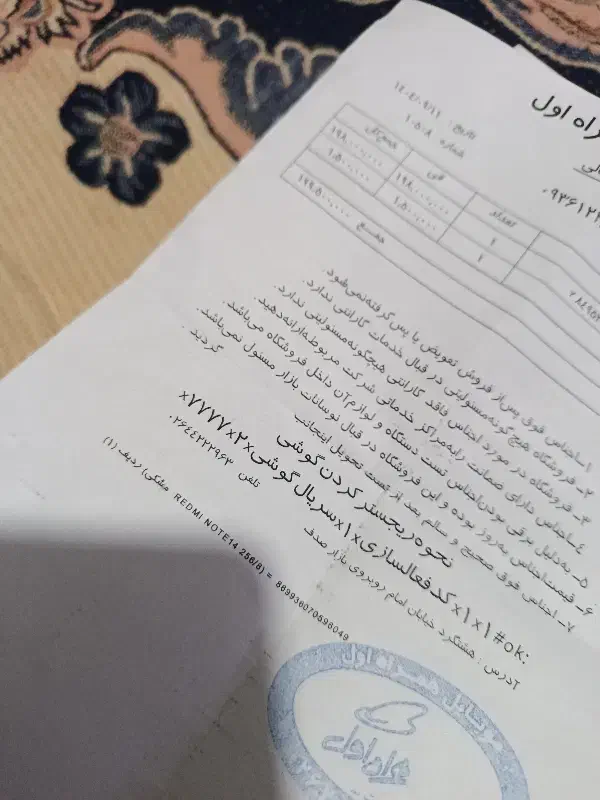 راه اول
تاریخ: ۱۴۰۴/۰۹/۱۱
شماره ۱۰۵۰۸
۰۹۳۶۱۲۲
تعداد فی جمع کل
۱ ۱۹۸،۰۰۰،۰۰۰ ۱۹۸،۰۰۰،۰۰۰
۱ ۱،۵۰۰،۰۰۰ ۱،۵۰۰،۰۰۰
جمع ۱۹۹،۵۰۰،۰۰۰
۱- اجناس فوق پس از فروش تعویض یا پس گرفته نمی‌شود.
۲- فروشگاه هیچ گونه مسئولیتی در قبال خدمات گارانتی ندارد.
۳- فروشگاه در مورد اجناس فاقد گارانتی هیچگونه مسئولیتی ندارد.
۴- اجناس دارای ضمانت رابه مراکز خدماتی شرکت مربوطه ارائه دهید.
۵- به دلیل برقی بودن اجناس تست دستگاه و لوازم آن داخل فروشگاه می‌باشد.
۶- قیمت اجناس به روز بوده و این فروشگاه در قبال نوسانات بازار مسئول نمی‌باشد.
۷- اجناس فوق صحیح و سالم بعد از تست تحویل اینجانب گردید.
نحوه ریجستر کردن گوشی
x۷۷۷۷x۲xسریال گوشیx۱xکد فعالسازیx۱x۱#ok:
آدرس : هشتگرد خیابان امام روبروی بازار صدف تلفن ۰۲۶۴۴۲۲۲۹۶۳
REDMI NOTE14 256/8) = 869936070596049 مشکی) ردیف (1)
همراه اول